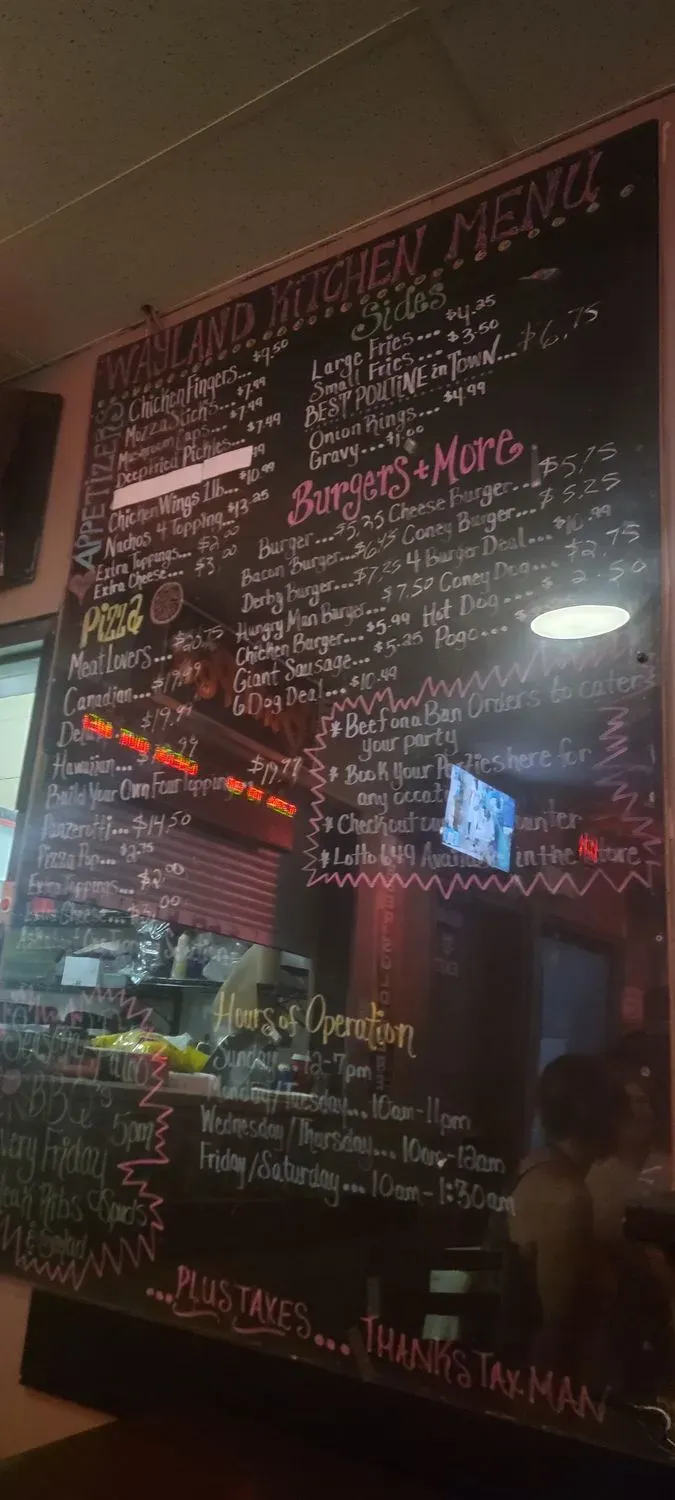 WAYLAND KITCHEN MENU
APPETIZERS
Chicken Fingers... $9.50
Mozza Sticks... $7.99
Mushroom Caps... $7.99
Deepfried Pickles... $7.49
Chicken Wings 1lb... $10.99
Nachos 4 Topping... $13.25
Extra Toppings... $2.00
Extra Cheese... $3.00
Sides
Large Fries... $4.25
Small Fries... $3.50
BEST POUTINE in TOWN... $6.75
Onion Rings... $4.99
Gravy... $1.00
Burgers + More
Burger... $5.25 Cheese Burger... $5.75
Bacon Burger... $6.45 Coney Burger... $5.25
Derby Burger... $7.25 4 Burger Deal... $10.99
Hungry Man Burger... $7.50 Coney Dog... $2.75
Chicken Burger... $5.99 Hot Dog... $2.50
Giant Sausage... $5.25 Pogo...
6 Dog Deal... $10.49
Pizza
Meat Lovers...
Canadian... $19.99
$19.99
Hawaiian...
Build Your Own Four Topping $19.99
Panzerotti... $14.50
Pizza Pop... $2.75
Extra Toppings... $2.00
Cheese... $3.00
* Beef on a Bun Orders to cater
your party
* Book Your Parties here for
any
* Check out
* Lotto 649 Available in the Store
BBQ's
5pm
Friday
Ribs
Hours of Operation
Sunday... 12-7pm
Monday/Tuesday... 10am-11pm
Wednesday/Thursday... 10am-12am
Friday/Saturday... 10am-1:30am
...PLUS TAXES... THANKS TAX MAN